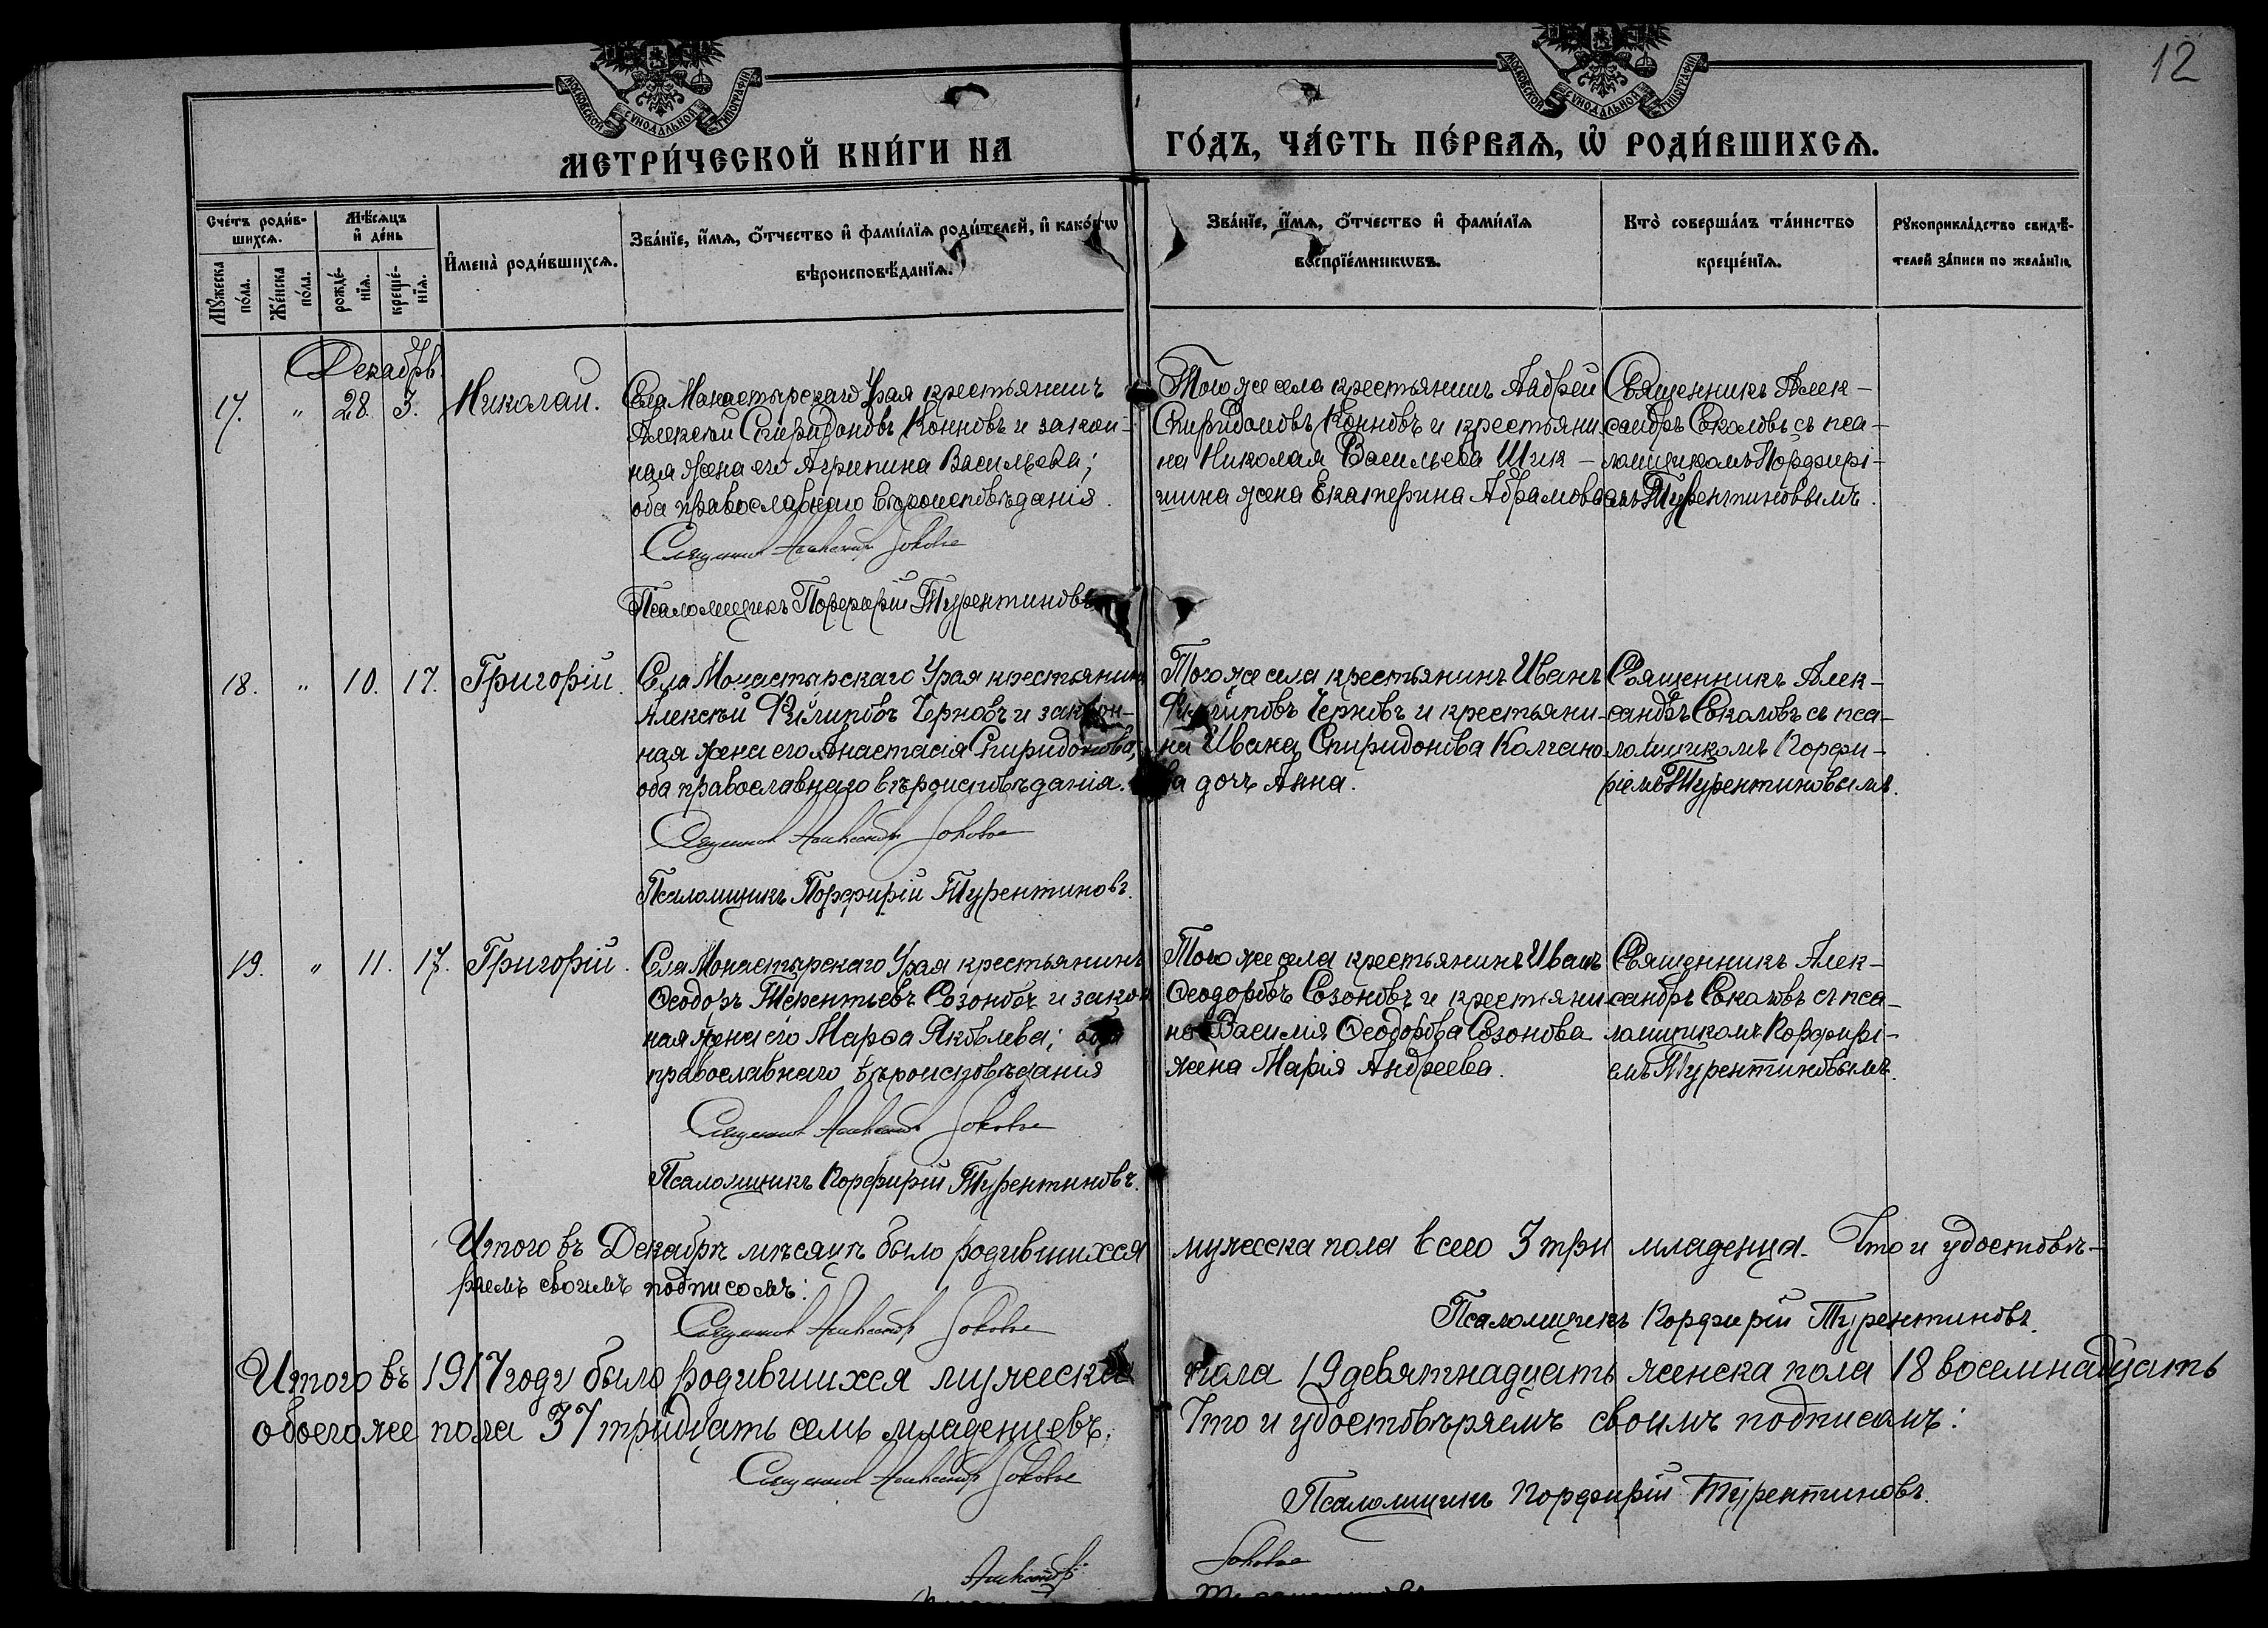 12
МОСКОВСКОЙ СѴНОДАЛЬНОЙ ТИПОГРАФІИ
МОСКОВСКОЙ СѴНОДАЛЬНОЙ ТИПОГРАФІИ
МЕТРИ́ЧЕСКОЙ КНИ́ГИ НА ГО́ДЪ, ЧА́СТЬ ПЕ́РВАѦ, Ѡ҆ РОДИ́ВШИХСѦ.
Сче́тъ роди́в-
шихсѧ.
Мѣ́сѧцъ
и҆ де́нь
Мꙋ́жеска
по́ла.
Же́нска
по́ла.
рожде́-
нїѧ.
креще́-
нїѧ.
И҆мена̀ роди́вшихсѧ.
Зва́нїе, и҆́мѧ, ѻ҆́тчество и҆ фами́лїѧ роди́телей, и҆ како́гѡ
вѣроисповѣ́данїѧ.
Зва́нїе, и҆́мѧ, ѻ҆́тчество и҆ фами́лїѧ
воспрїе́мникѡвъ.
Кто̀ соверша́лъ та́инство
креще́нїѧ.
Рꙋкоприкла́дство свидѣ́-
телей за́писи по жела́нїю.
Декабрь.
17. " 28. 3. Николай.
Села Монастырскаго Урая крестьянинъ
Алексѣй Спиридоновъ Конновъ и закон-
ная жена его Агрипина Васильева;
оба православнаго вѣроисповѣданія.
Священник Александр Соколов
Псаломщикъ Порфирій Турентиновъ
Того же села крестьянинъ Андрей
Спиридоновъ Конновъ и крестьяни-
на Николая Васильева Шик-
шина жена Екатерина Абрамова
Священникъ Алек-
сандръ Соколовъ съ пса-
ломщикомъ Порфирі-
емъ Турентиновымъ.
18. " 10. 17. Григорій.
Села Монастырскаго Урая крестьянинъ
Алексѣй Филиповъ Черновъ и закон-
ная жена его Анастасія Спиридонова;
оба православнаго вѣроисповѣданія.
Священник Александр Соколов
Псаломщикъ Порфирій Турентиновъ.
Того же села крестьянинъ Иванъ
Филиповъ Черновъ и крестьяни-
на Ивана Спиридонова Колчано
ва дочь Анна.
Священникъ Алек-
сандръ Соколовъ съ пса-
ломщикомъ Порфи-
ріемъ Турентиновымъ.
19. " 11. 17. Григорій.
Села Монастырскаго Урая крестьянинъ
Ѳеодоръ Терентьевъ Созоновъ и закон
ная жена его Марѳа Яковлева; оба
православнаго вѣроисповѣданія
Священник Александр Соколов
Псаломщикъ Порфирій Турентиновъ.
Того же села крестьянинъ Иванъ
Ѳеодоровъ Созоновъ и крестьяни-
на Василія Ѳеодорова Созонова
жена Марія Андреева.
Священникъ Алек-
сандръ Соколовъ съ пса-
ломщикомъ Порфирі-
емъ Турентиновымъ.
Итого въ Декабрѣ мѣсяцѣ было родившихся мужеска пола всего 3 три младенца. Что и удостовѣ-
ряемъ своимъ подписомъ:
Священник Александр Соколов
Псаломщикъ Порфирій Турентиновъ.
Итого въ 1917 году было родившихся мужеска пола 19 девятнадцать женска пола 18 восемнадцать
обоего же пола 37 тридцать семь младенцевъ. Что и удостовѣряемъ своимъ подписомъ:
Священник Александр Соколов
Псаломщикъ Порфирій Турентиновъ.
Александр Соколов